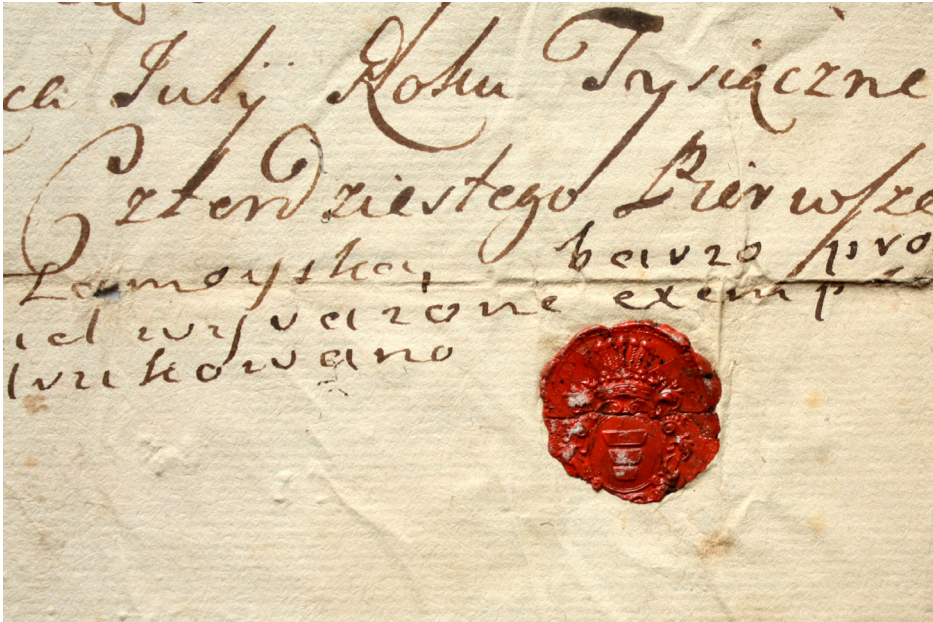 ca Julij Roku Tysiączne
Czterdziestego Pierwsze
Zamoyska, barzo pro
ad wyrażone exemp
drukowano